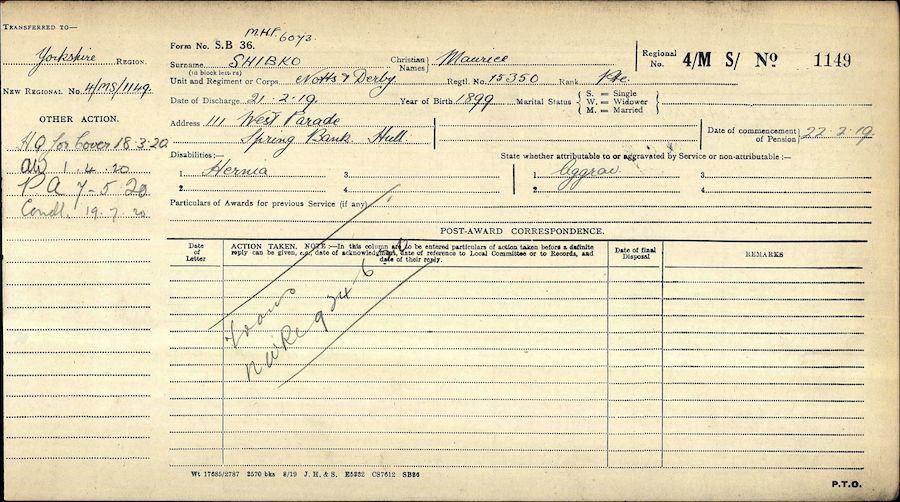 TRANSFERRED TO—
Yorkshire REGION.
NEW REGIONAL No. 4/MS/1149.
OTHER ACTION.
HQ for Cover 18.3.20
1.4.20
P A 7-5-20
Condl. 19.7.20
MHP. 6073.
FORM No. S.B 36.
Surname (in block letters) SHIBKO
Christian Names} Maurice
Regional No. 4/M S/ No 1149
Unit and Regiment or Corps. Notts & Derby. Regtl. No. 15350 Rank Pte.
Date of Discharge 21.2.19. Year of Birth 1899 Marital Status { S. = Single
W. = Widower
M. = Married
Address 111 West Parade
Spring Bank. Hull
Date of commencement of Pension} 22.2.19
Disabilities:— State whether attributable to or aggravated by Service or non-attributable:—
1. Hernia 3. 1. Aggrav. 3.
2. 4. 2. 4.
Particulars of Awards for previous Service (if any)
POST-AWARD CORRESPONDENCE.
Date of Letter
ACTION TAKEN. NOTE:—In this column are to be entered particulars of action taken before a definite reply can be given, e.g., date of acknowledgment, date of reference to Local Committee or to Records, and date of their reply.
Date of final Disposal
REMARKS
Trans
24.6
Wt 17685/2787 2570 bks 8/19 J. H. & S. E5332 CS7612 SB36
P.T.O.